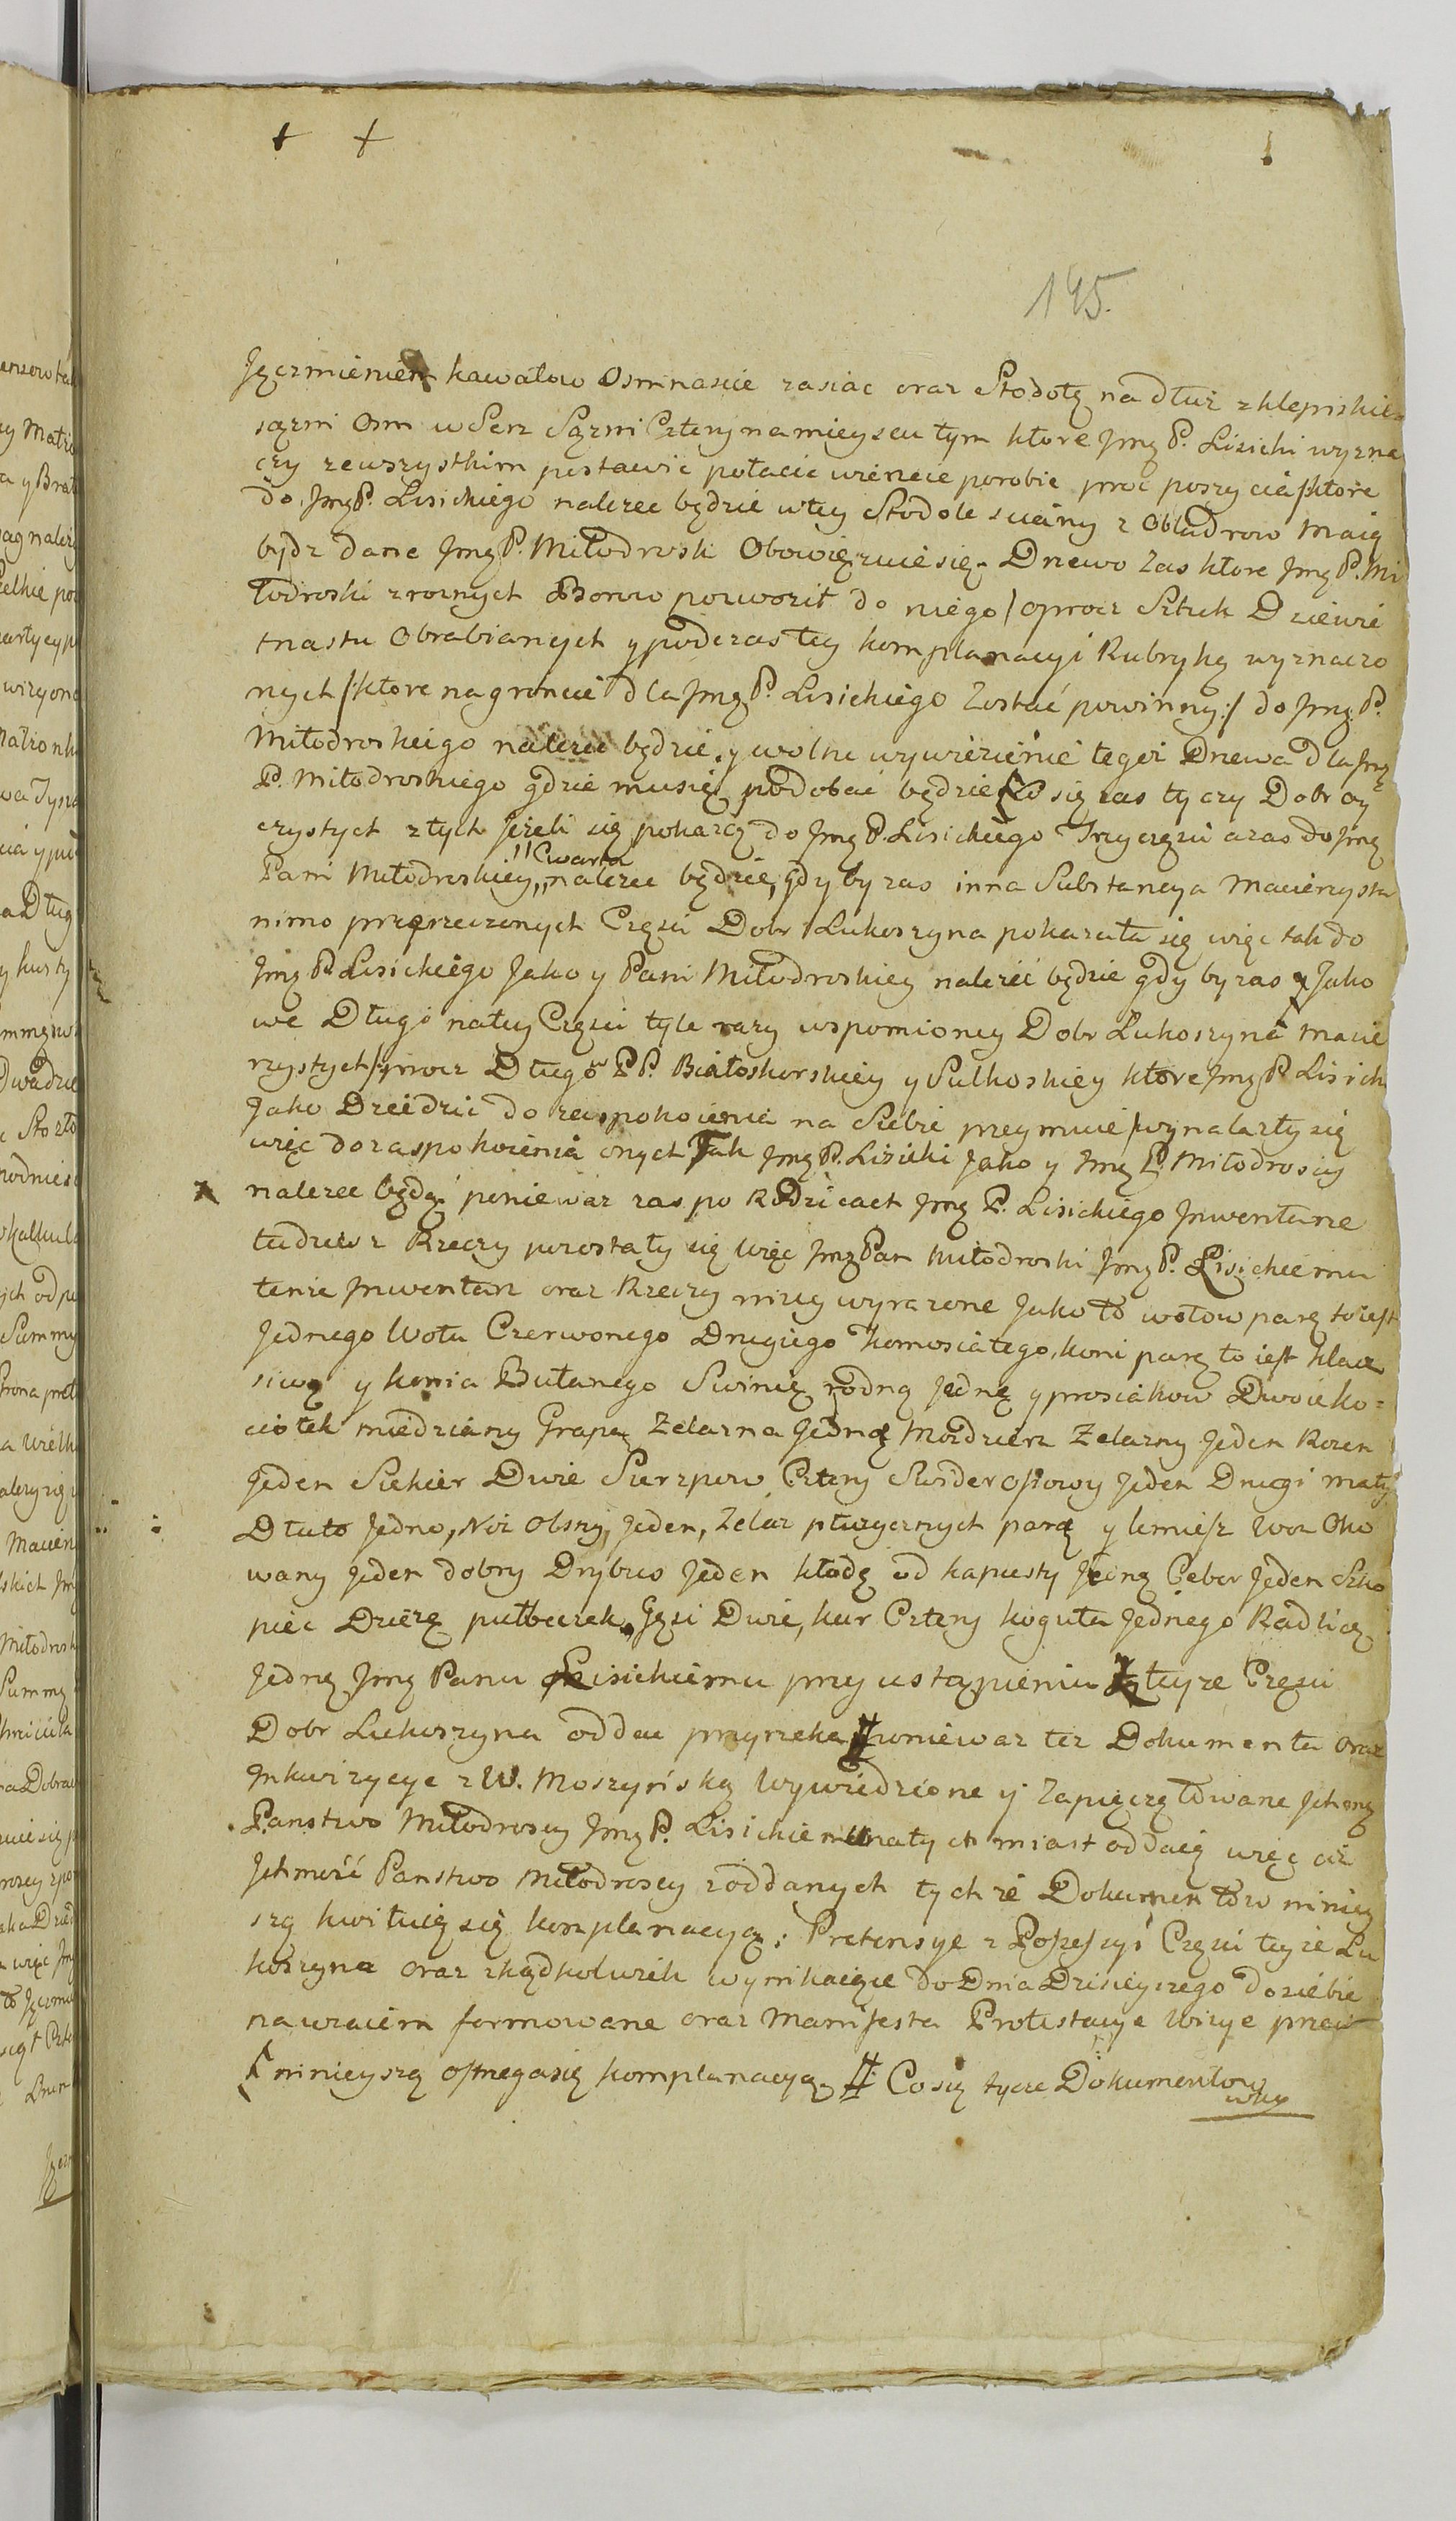 195.
Jęczmieniem kawałow Osmnascie zasiac oraz Stodołę na dłuż z klepiskie=
sązni Osm w Serz Sązni Cztery na mieyscu tym ktore Jmę P. Lisicki wyzna
czy ze wszystkim postawić połacic wrencie porobic procz poszycia /ktore
do Jmę P. Lisickiego nalezec będzie w tey Stodole sciany z Obladrow maią
bydz dane Jmę P. Miłodroski Obowięzuie się. Drzewo Zas ktore Jmę P. Mi
łodroski z roznych Borow powoził do niego / oprocz Sztuk Dziewię
tnastu Obrabianych y podczas tey komplanacyi Rubryką wyznaczo
nych /ktore na groncie dla Jmę P. Lisickiego Zostać powinny:/ do Jmę P.
Miłodroskiego nalezec będzie. y wolne wywiezienie tegoż Drzewa dla Jmę
P. Miłodroskiego gdzie mu się podobać będzie Co się zas tyczy Dobr Oy
czystych z tych jeżeli się pokażą do Jmę P. Lisickiego Trzy części a zas do Jmę
"Cwarta
Pani Miłodroskiey,, nalezec będzie, gdy by zas inna Substancya Macierzysta
nimo przerzeczonych Części Dobr Łukoszyna pokazała się więc tak do
Jmę P. Lisickiego Jako y Pani Miłodroskiey należeć będzie gdy by zas y Jako
we Długi na tey Części tyle razy wspomioney Dobr Łukoszyna Macie
rzystych /: procz Długo PP. Białoskorskiey y Sulkoskiey ktore Jmę P. Lisick
Jako Dziedzic do zaspokoienia na Siebie przeymuie / wynalazły się
więc do zaspokoienia onych Tak Jmę P. Lisicki Jako y Jmę P. Miłodroscy
nalezec będą poniewaz zas po Rodzicach Jmę P. Lisickiego Jnwentarze
tudziesz Rzeczy pozostały się więc Jmę Pan Miłodroski Jmę P. Lisickiemu
tenże Jnwentarz oraz Rzeczy nizey wyrazone Jako to wołow parę to iest
Jednego Wołu Czerwonego Drugiego komosiatego, koni parę to iest klacz
siwą y konia Bułanego Swinię rodną Jednę y prosiakow Dwoie ko=
ciołek miedziany Grapę Zelazna Jedną Mozdzierz Zelazny Jeden Rozen
Jeden Siekier Dwie Sierzpow Cztery Swider osiowy Jeden Drugi mały
Dłuto Jedno, Noz Obszny, Jeden, Zelaz płuzycznych parę y lemiesz Woz Oko
wany Jeden dobry Drybus Jeden kłodę od kapusty Jednę Ceber Jeden Szko
piec Dzieżę pułbeczek, Gęsi Dwie, kur Cztery koguta Jednego Radlicę
Jednę Jmę Panu Lisickiemu przy ustąpieniu z teyze Części
Dobr Łukoszyna oddac przyrzeka # poniewaz tez Dokumenta Oraz
Jnkwizycye z W. Moszyńską Wywiedzione y Zapięczętowane Jchmę
Panstwo Miłodroscy Jmę P. Lisickiemu natychmiast oddaią więc ciż
Jchmość Panstwo Miłodroscy z oddanych tychże Dokumentow niniey
szą kwituią się komplanacyą; Pretensye z Possessyi Części teyże Łu
koszyna oraz zkądkolwiek wynikaiące do Dnia Dzisieyszego do siebie
nawzaiem formowane oraz Manifesta Protestacye Wizye przez
ninieyszą ostrzega się komplanacyą. # Co się tycze Dokumentow